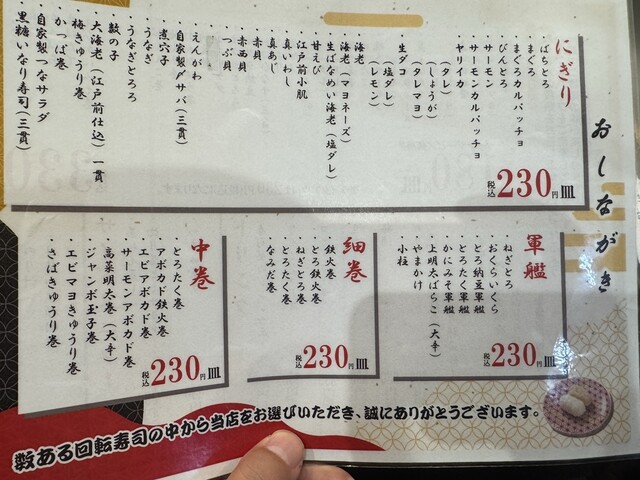 おしながき
にぎり
・ばちとろ
・まぐろ
・まぐろカルパッチョ
・びんとろ
・サーモン
・サーモンカルパッチョ
・ヤリイカ
（タレ）
（しょうが）
（タレマヨ）
・生ダコ
（塩ダレ）
（レモン）
・海老
・海老（マヨネーズ）
・生ばなめい海老（塩ダレ）
・甘えび
・江戸前小肌
・真いわし
・真あじ
・赤貝
・赤西貝
・つぶ貝
・えんがわ
・自家製〆サバ（三貫）
・煮穴子
・うなぎ
・うなぎとろろ
・数の子
・大海老（江戸前仕込）一貫
・梅きゅうり巻
・かっぱ巻
・自家製つなサラダ
・黒糖いなり寿司（三貫）
税込230円皿
軍艦
・ねぎとろ
・おくらいくら
・とろ納豆軍艦
・とろたく軍艦
・かにみそ軍艦
・上明太ばらこ（大辛）
・やまかけ
・小柱
税込230円皿
細巻
・鉄火巻
・とろ鉄火巻
・ねぎとろ巻
・とろたく巻
・なみだ巻
税込230円皿
中巻
・とろたく巻
・アボカド鉄火巻
・エビアボカド巻
・サーモンアボカド巻
・高菜明太巻（大辛）
・ジャンボ玉子巻
・エビマヨきゅうり巻
・さばきゅうり巻
税込230円皿
数ある回転寿司の中から当店をお選びいただき、誠にありがとうございます。